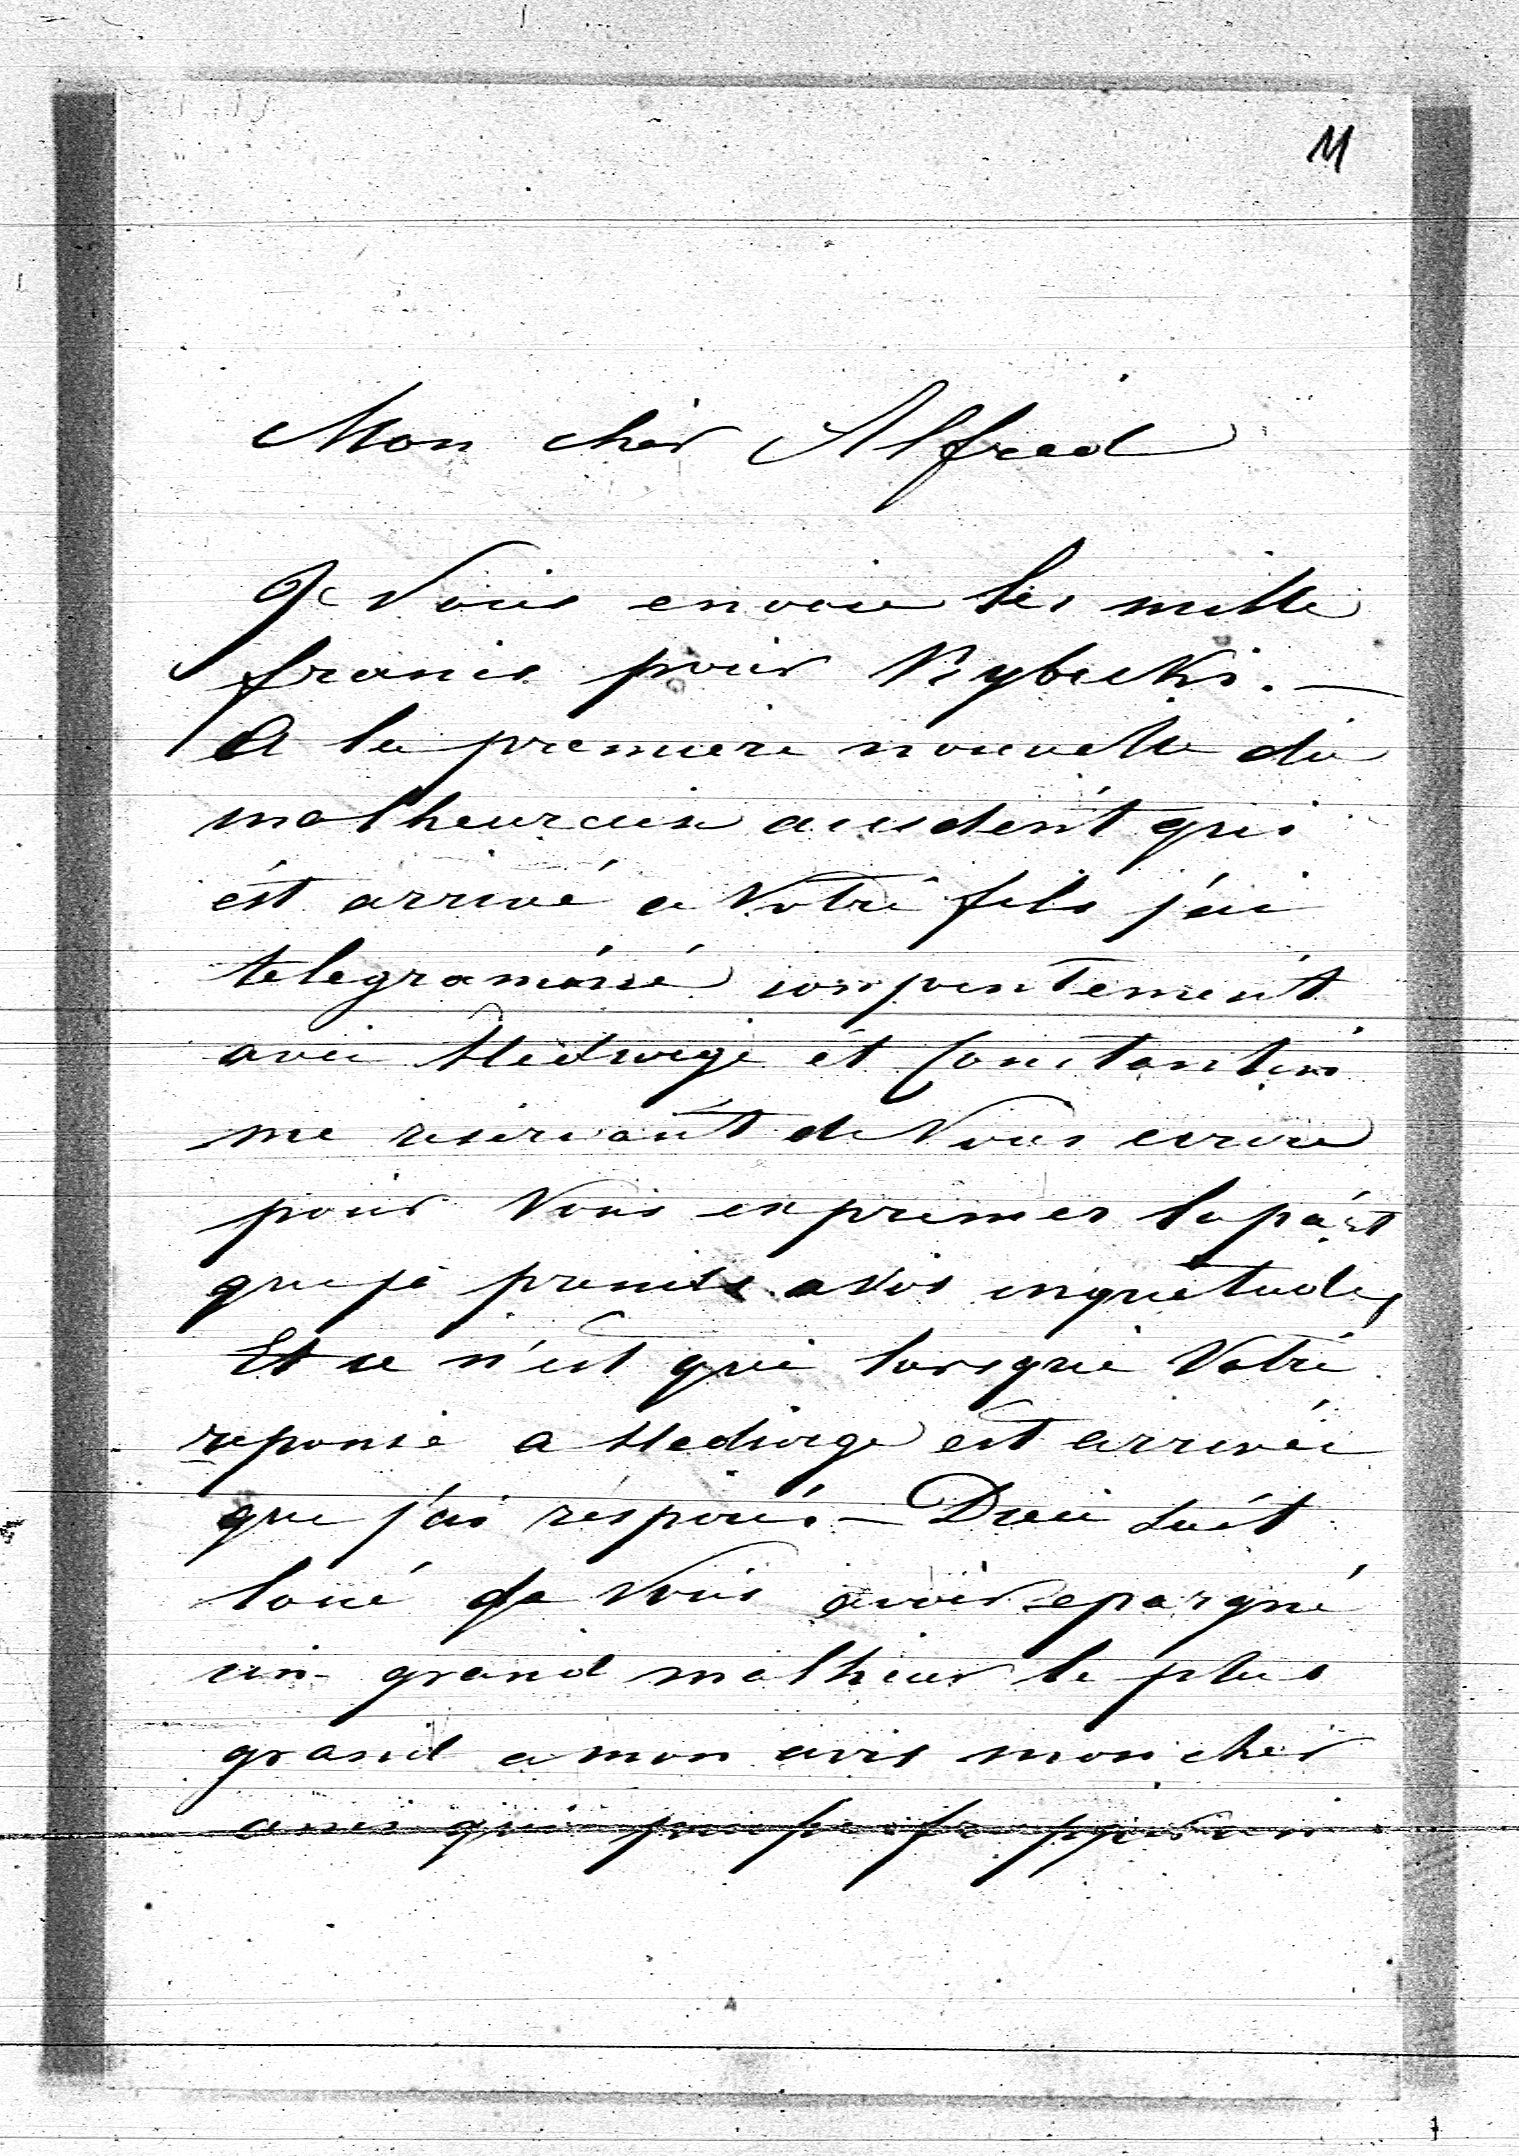 11
Mon cher Alfred
Je Vous envoie les mille
francs pour Rybicki. —
A la premiere nouvelle du
malheureux accident qui
ést arrivé a Votre fils j'ai
telegrammé conjointement
avec Hedwige et Constantin
me reservant de Vous ecrire
pour Vous exprimer la part
que je prends a Vos inquietudes
Et ce n'est que lorsque Votre
reponse a Hedwige est arrivée
que j'ai réspiré. — Dieu soit
loué de Vous avoir epargné
un grand malheur le plus
grand a mon avis mon cher
ami qui